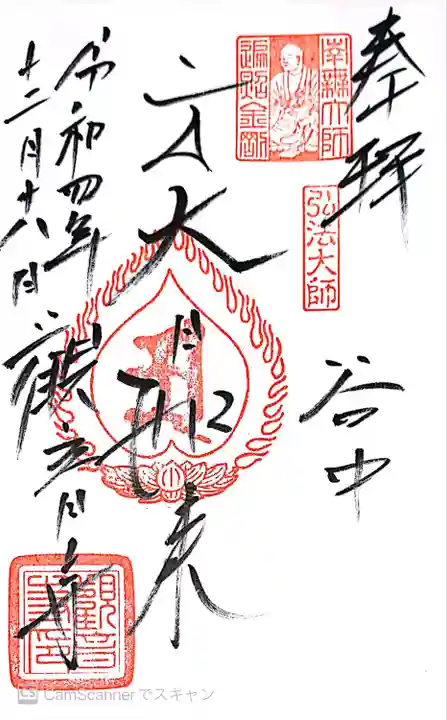 奉拝
南無大師
遍照金剛
弘法大師
谷中
大日如来
令和四年
十二月十八日
観音寺
觀音
CS CamScannerでスキャン